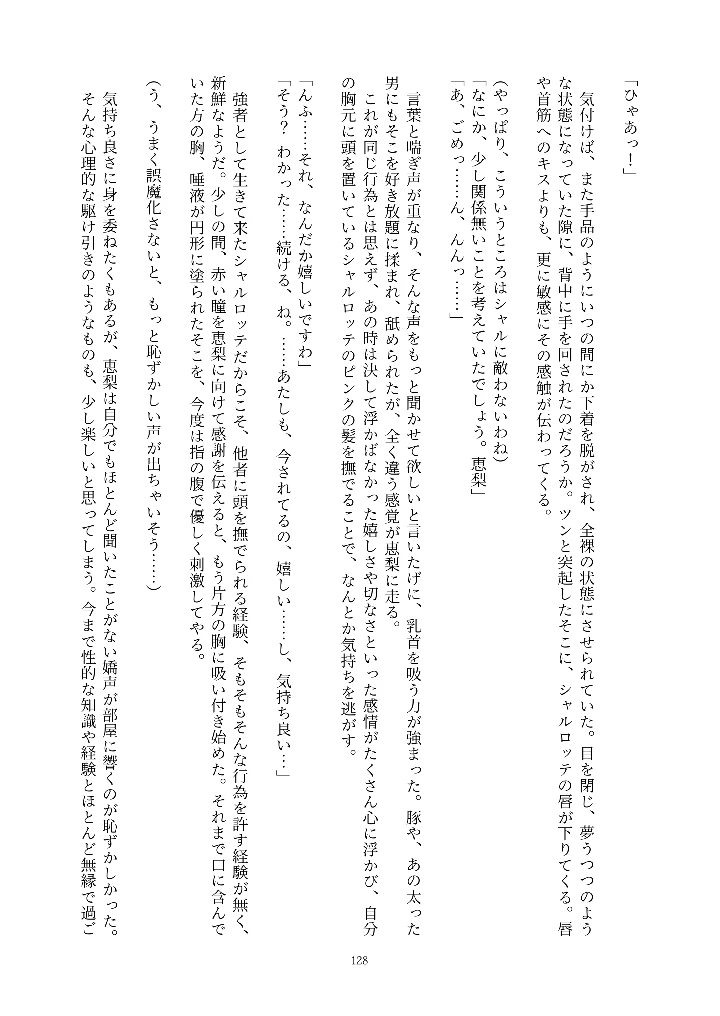 「ひゃあっ！」
気付けば、また手品のようにいつの間にか下着を脱がされ、全裸の状態にさせられていた。目を閉じ、夢うつつのよう
な状態になっていた隙に、背中に手を回されたのだろうか。ツンと突起したそこに、シャルロッテの唇が下りてくる。唇
や首筋へのキスよりも、更に敏感にその感触が伝わってくる。
(やっぱり、こういうところはシャルに敵わないわね)
「なにか、少し関係無いことを考えていたでしょう。恵梨」
「あ、ごめっ……ん、んんっ……」
言葉と喘ぎ声が重なり、そんな声をもっと聞かせて欲しいと言いたげに、乳首を吸う力が強まった。豚や、あの太った
男にもそこを好き放題に揉まれ、舐められたが、全く違う感覚が恵梨に走る。
これが同じ行為とは思えず、あの時は決して浮かばなかった嬉しさや切なさといった感情がたくさん心に浮かび、自分
の胸元に頭を置いているシャルロッテのピンクの髪を撫でることで、なんとか気持ちを逃がす。
「んふ……それ、なんだか嬉しいですわ」
「そう？　わかった……続ける、ね。……あたしも、今されてるの、嬉しい……し、気持ち良い…」
強者として生きて来たシャルロッテだからこそ、他者に頭を撫でられる経験、そもそもそんな行為を許す経験が無く、
新鮮なようだ。少しの間、赤い瞳を恵梨に向けて感謝を伝えると、もう片方の胸に吸い付き始めた。それまで口に含んで
いた方の胸、唾液が円形に塗られたそこを、今度は指の腹で優しく刺激してやる。
(う、うまく誤魔化さないと、もっと恥ずかしい声が出ちゃいそう……)
気持ち良さに身を委ねたくもあるが、恵梨は自分でもほとんど聞いたことがない嬌声が部屋に響くのが恥ずかしかった。
そんな心理的な駆け引きのようなものも、少し楽しいと思ってしまう。今まで性的な知識や経験とほとんど無縁で過ご
128